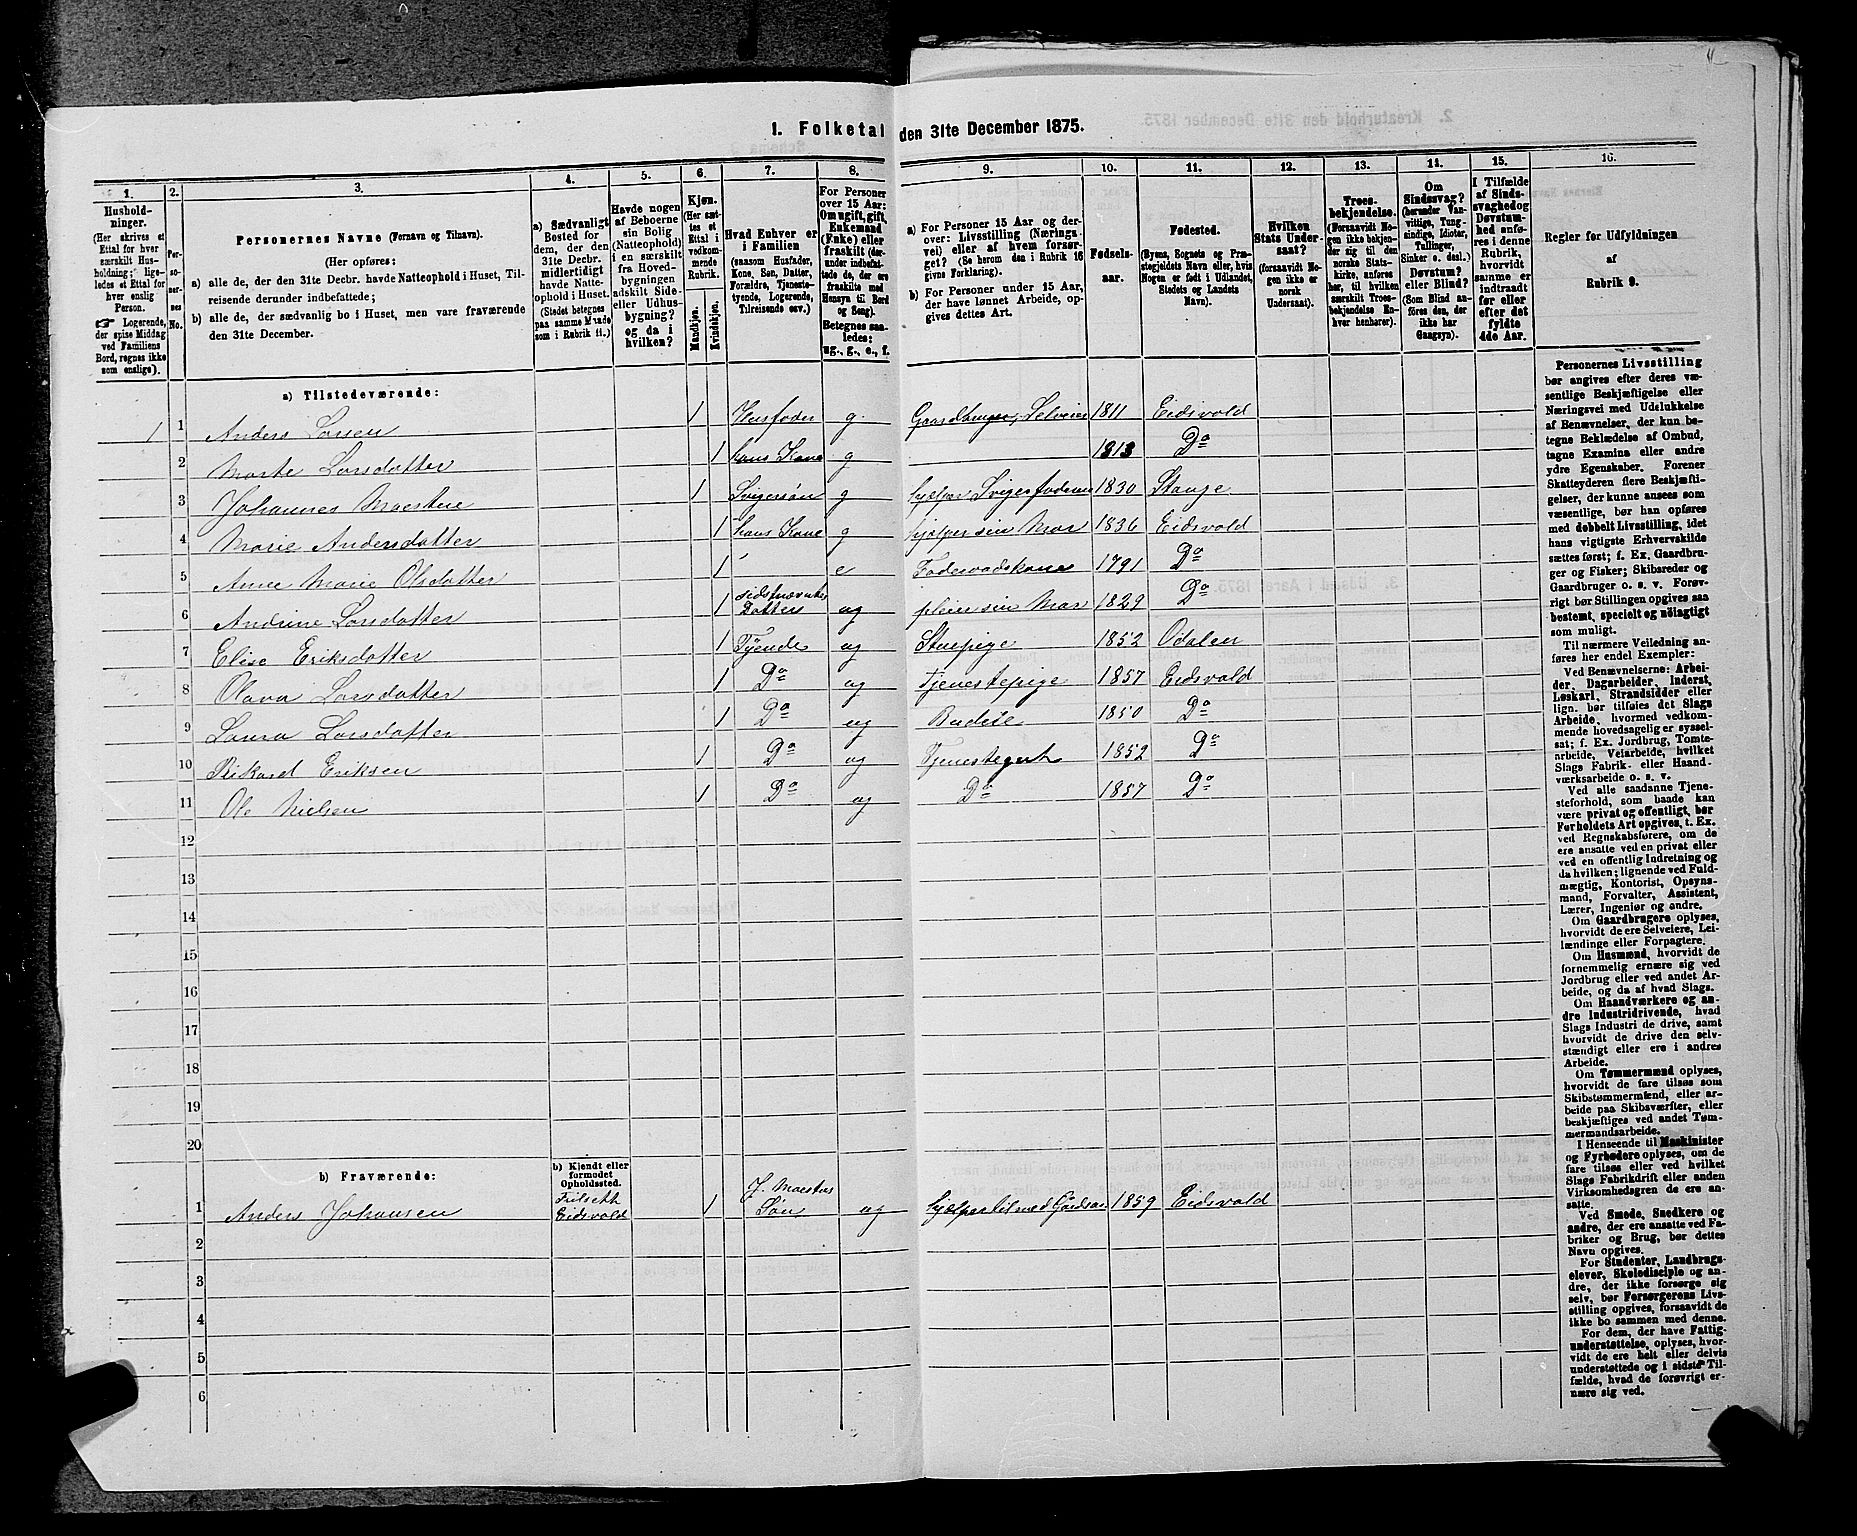 1. Folketal den 31te December 1875.
1. 2. 3. 4. 5. 6. 7. 8. 9. 10. 11. 12. 13. 14. 15. 16.
Hushold-
ninger.
(Her skrives et
Ettal for hver
særskilt Hus-
holdning; lige-
ledes et Ettal for
hver enslig
Person.
☞ Logerende,
der spise Middag
ved Familiens
Bord, regnes ikke
som enslige).
Per-
so-
ner-
nes
No.
Personernes Navne (Fornavn og Tilnavn).
(Her opføres:
a) alle de, der den 31te Decbr. havde Natteophold i Huset, Til-
reisende derunder indbefattede;
b) alle de, der sædvanlig bo i Huset, men vare fraværende
den 31te December.
a) Sædvanligt
Bosted for
dem, der den
31te Decbr.
midlertidigt
havde Natte-
ophold i Huset.
(Stedet betegnes
paa samme Maade
som i Rubrik 11.)
Havde nogen
af Beboerne
sin Bolig
(Natteophold)
i en særskilt
fra Hoved-
bygningen
adskilt Side-
eller Udhus-
bygning?
og da i
hvilken?
Kjøn.
(Her sæt-
tes et
Ettal i
vedkom-
mende
Rubrik.
Mandkjøn.
Kvindekjøn.
Hvad Enhver er
i Familien
(saasom Husfader,
Kone, Søn, Datter,
Forældre, Tjeneste-
tyende, Logerende,
Tilreisende osv.)
For Personer
over 15 Aar:
Om ugift, gift,
Enkemand
(Enke) eller
fraskilt (der-
under indbefat-
tede de, der ere
fraskilte med
Hensyn til Bord
og Seng).
Betegnes saa-
ledes:
ug., g., e., f.
a) For Personer 15 Aar og der-
over: Livsstilling (Nærings-
vei) eller af hvem forsør-
get? (Se herom den i Rubrik 16
givne Forklaring).
b) For Personer under 15 Aar,
der have lønnet Arbeide, op-
gives dettes Art.
Fødsels-
aar.
Fødested.
(Byens, Sognets og Præ-
stegjeldets Navn eller, hvis
Nogen er født i Udlandet,
Stedets og Landets
Navn).
Hvilken
Stats Under-
saat?
(forsaavidt No-
gen ikke er
norsk
Undersaat).
Troes-
bekjendelse.
(Forsaavidt No-
gen ikke bekjen-
der sig til den
norske Stats-
kirke, anføres
her, til hvilken
særskilt Troes-
bekjendelse En-
hver henhører).
Om
Sindssvag?
(herunder Van-
vittige, Tung-
sindige, Idioter,
Tullinger,
Sinker o. desl.)
Døvstum?
eller Blind?
(Som Blind an-
føres den, der
ikke har
Gangsyn).
I Tilfælde
af Sinds-
svaghed og
Døvstum-
hed anfø-
res i denne
Rubrik,
hvorvidt
samme er
indtraadt
før eller
efter det
fyldte
4de Aar.
Regler for Udfyldningen
af
Rubrik 9.
a) Tilstedeværende:
1 1 Anders Larsen 1 Husfader g. Gaardbruger, Selveier 1811 Eidsvold
2 Marte Larsdatter 1 hans Kone g 1813 Do
3 Johannes Maestue 1 Svigersøn g hjælper Svigerfaderen 1830 Stange
4 Marie Andersdatter 1 hans Kone g hjelper sin Mor 1836 Eidsvold
5 Anne Marie Olsdatter 1 e Føderaadskone 1791 Do
6 Andrine Larsdatter 1 sidstnævntes Datter ug pleier sin Mor 1829 Do
7 Elise Eriksdatter 1 Tjende ug Stuepige 1852 Odalen
8 Olava Larsdatter 1 Do ug Tjenestepige 1857 Eidsvold
9 Laura Larsdatter 1 Do ug Budeie 1850 Do
10 Rikard Eriksen 1 Do ug Tjenestegut 1852 Do
11 Ole Nielsen 1 Do ug Do 1857 Do
12
13
14
15
16
17
18
19
20
b) Fraværende:
b) Kjendt eller
formodet
Opholdssted.
1 Anders Johansen Eidsvold 1 J. Maestus Søn ug hjælper til med 1859 Eidsvold
2
3
4
5
6
Personernes Livsstilling
bør angives efter deres væ-
sentlige Beskjæftigelse eller
Næringsvei med Udelukkelse
af Benævnelser, der kun be-
tegne Beklædelse af Ombud,
tagne Examina eller andre
ydre Egenskaber. Forener
Skatteyderen flere Beskjæfti-
gelser, der kunne ansees som
væsentlige, bør han opføres
med dobbelt Livsstilling, idet
hans vigtigste Erhvervskilde
sættes først; f. Ex. Gaardbru-
ger og Fisker; Skibsreder og
Gaardbruger o. s. v. Forøv-
rigt bør Stillingen opgives saa
bestemt, specielt og nøiagtigt
som muligt.
Til nærmere Veiledning an-
føres her endel Exempler:
Ved Benævnelserne: Arbei-
der, Dagarbeider, Inderst,
Løskarl, Strandsidder eller
lign. bør tilføies det Slags
Arbeide, hvormed vedkom-
mende hovedsagelig er syssel-
sat; f. Ex. Jordbrug, Tomte-
arbeide, Veiarbeide, hvilket
Slags Fabrik- eller Haand-
værksarbeide o. s. v.
Ved alle saadanne Tjene-
steforhold, som baade kan
være privat og offentligt, bør
Forholdets Art opgives, t. Ex.
ved Regnskabsførere, om de
ere ansatte ved en privat eller
ved en offentlig Indretning og
da hvilken; lignende ved Fuld-
mægtig, Kontorist, Opsyns-
mand, Forvalter, Assistent,
Lærer, Ingeniør og andre.
Om Gaardbrugere oplyses,
hvorvidt de ere Selveiere, Lei-
lændinge eller Forpagtere.
Om Husmænd, hvorvidt de
fornemmelig ernære sig ved
Jordbrug eller ved andet Ar-
beide, og da af hvad Slags.
Om Haandværkere og an-
dre Industridrivende, hvad
Slags Industri de drive, samt
hvorvidt de drive den selv-
stændigt eller ere i andres
Arbeide.
Om Tømmermænd oplyses,
hvorvidt de fare tilsøs som
Skibstømmermænd, eller ar-
beide paa Skibsværfter, eller
beskjæftiges ved andet Tøm-
mermandsarbeide.
I Henseende til Maskinister
og Fyrbødere oplyses, om de
fare tilsøs eller ved hvilket
Slags Fabrikdrift eller anden
Virksomhedsgren de ere an-
satte.
Ved Smede, Snedkere og
andre, der ere ansatte ved Fa-
briker og Brug, bør dettes
Navn opgives.
For Studenter, Landbrugs-
elever, Skoledisciple og an-
dre, der ikke forsørge sig
selv, bør Forsørgerens Livs-
stilling opgives, forsaavidt de
ikke bo sammen med denne.
For dem, der have Fattig-
understøttelse, oplyses, hvor-
vidt de ere helt eller delvis
understøttede og i sidste Til-
fælde, hvad de forøvrigt er-
nære sig ved.